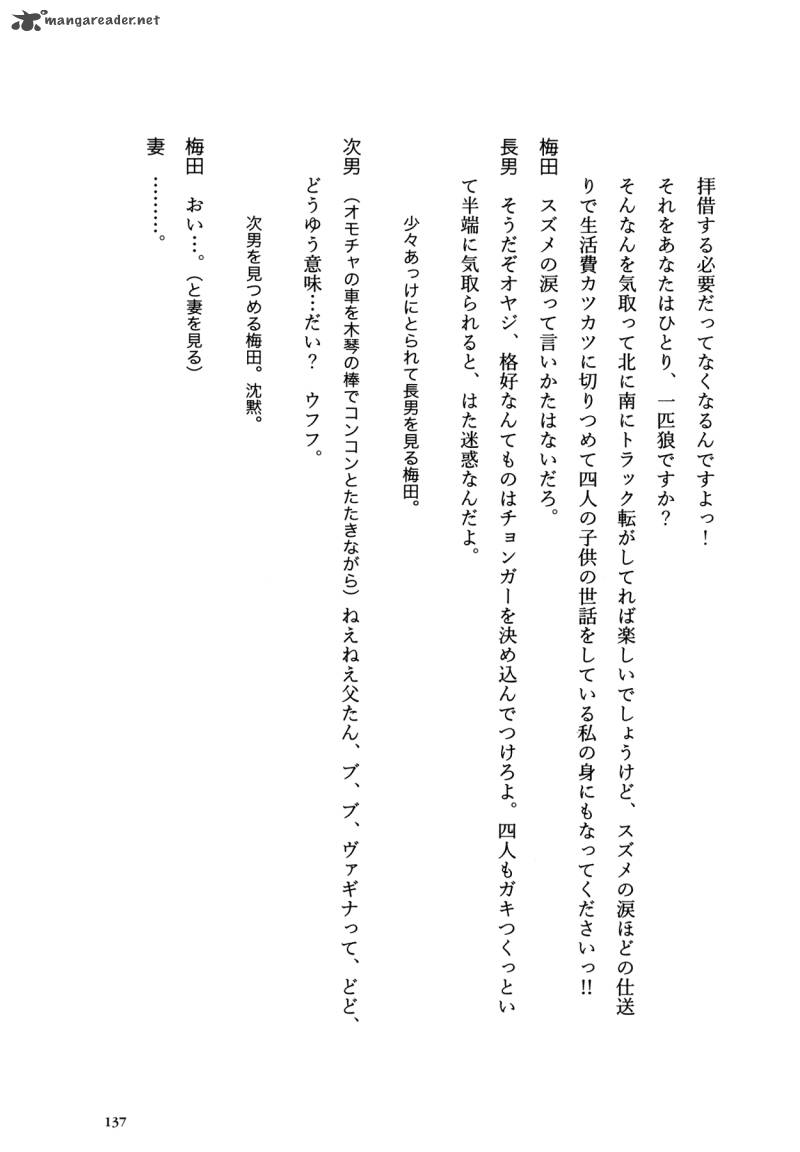 mangareader.net
拝借する必要だってなくなるんですよっ！
それをあなたはひとり、一匹狼ですか？
そんなんを気取って北に南にトラック転がしてれば楽しいでしょうけど、スズメの涙ほどの仕送
りで生活費カツカツに切りつめて四人の子供の世話をしている私の身にもなってくださいっ!!
梅田　スズメの涙って言いかたはないだろ。
長男　そうだぞオヤジ、格好なんてものはチョンガーを決め込んでつけろよ。四人もガキつくっとい
て半端に気取られると、はた迷惑なんだよ。
少々あっけにとられて長男を見る梅田。
次男　（オモチャの車を木琴の棒でコンコンとたたきながら）ねえねえ父たん、ブ、ブ、ヴァギナって、どど、
どうゆう意味…だい？　ウフフ。
次男を見つめる梅田。沈黙。
梅田　おい…。（と妻を見る）
妻　………。
137